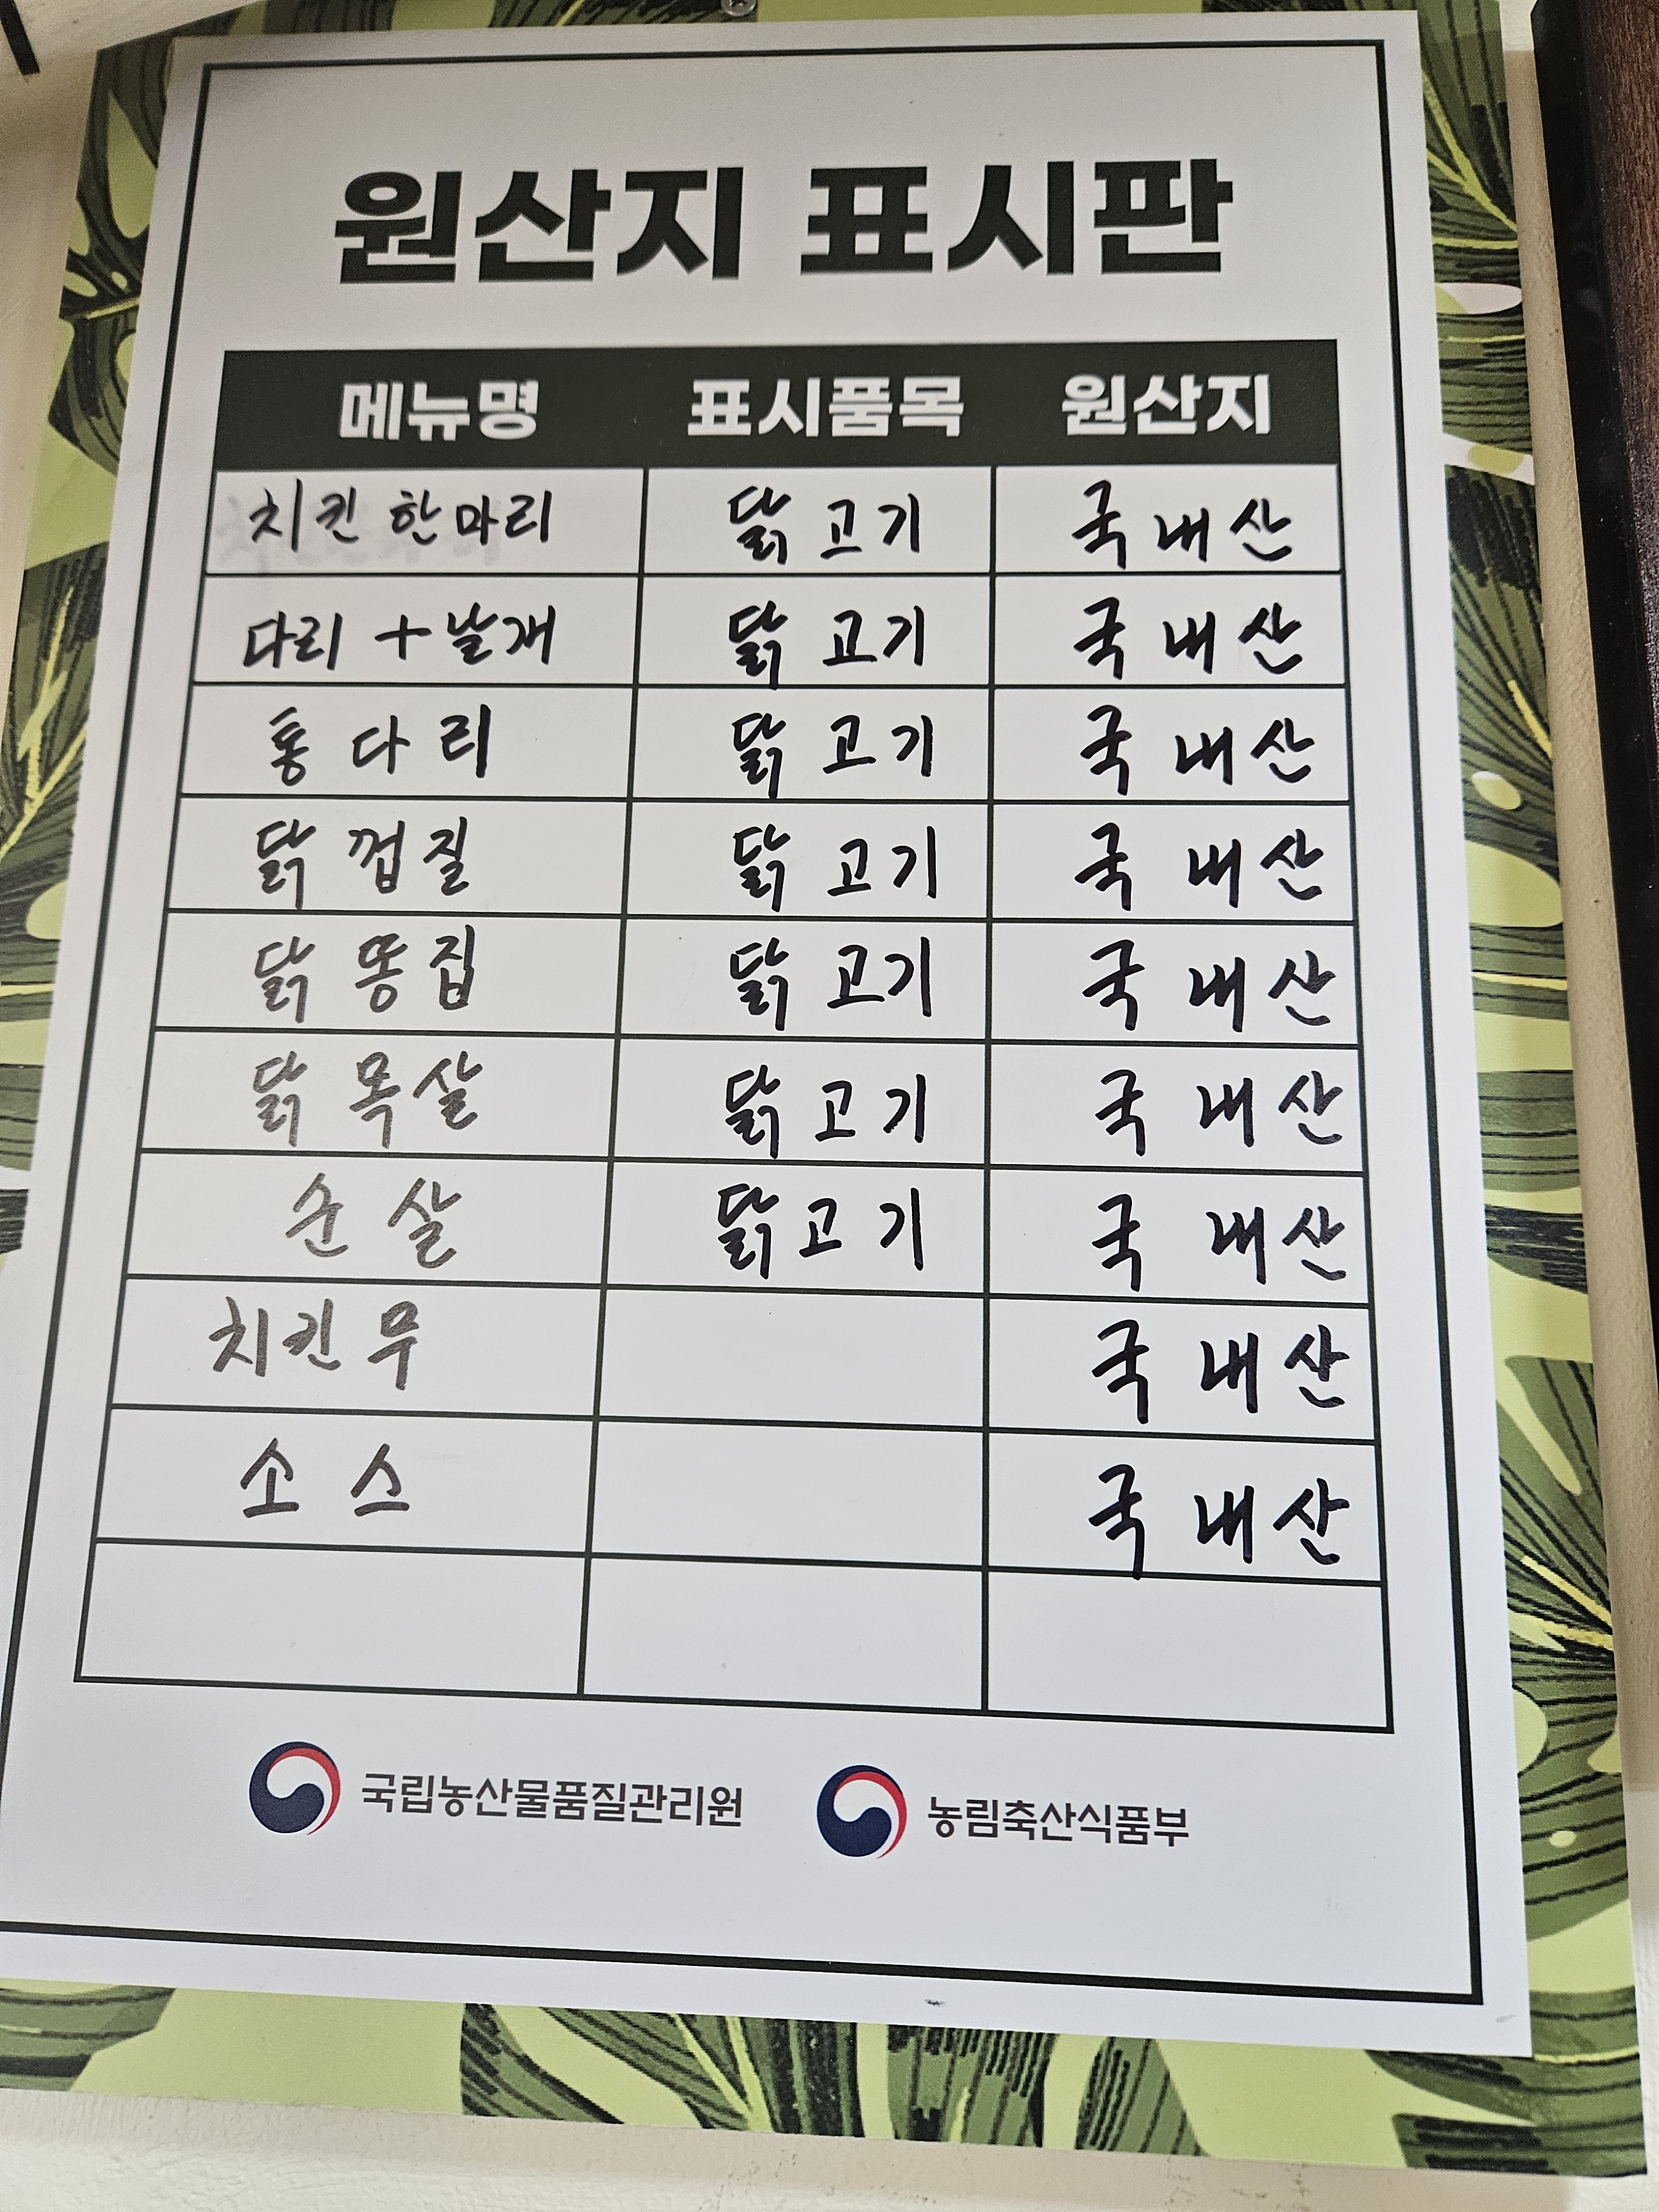 원산지 표시판
메뉴명 표시품목 원산지
치킨 한마리 닭고기 국내산
다리 + 날개 닭고기 국내산
통다리 닭고기 국내산
닭 껍질 닭고기 국내산
닭 똥집 닭고기 국내산
닭 목살 닭고기 국내산
순살 닭고기 국내산
치킨무 국내산
소스 국내산
국립농산물품질관리원 농림축산식품부